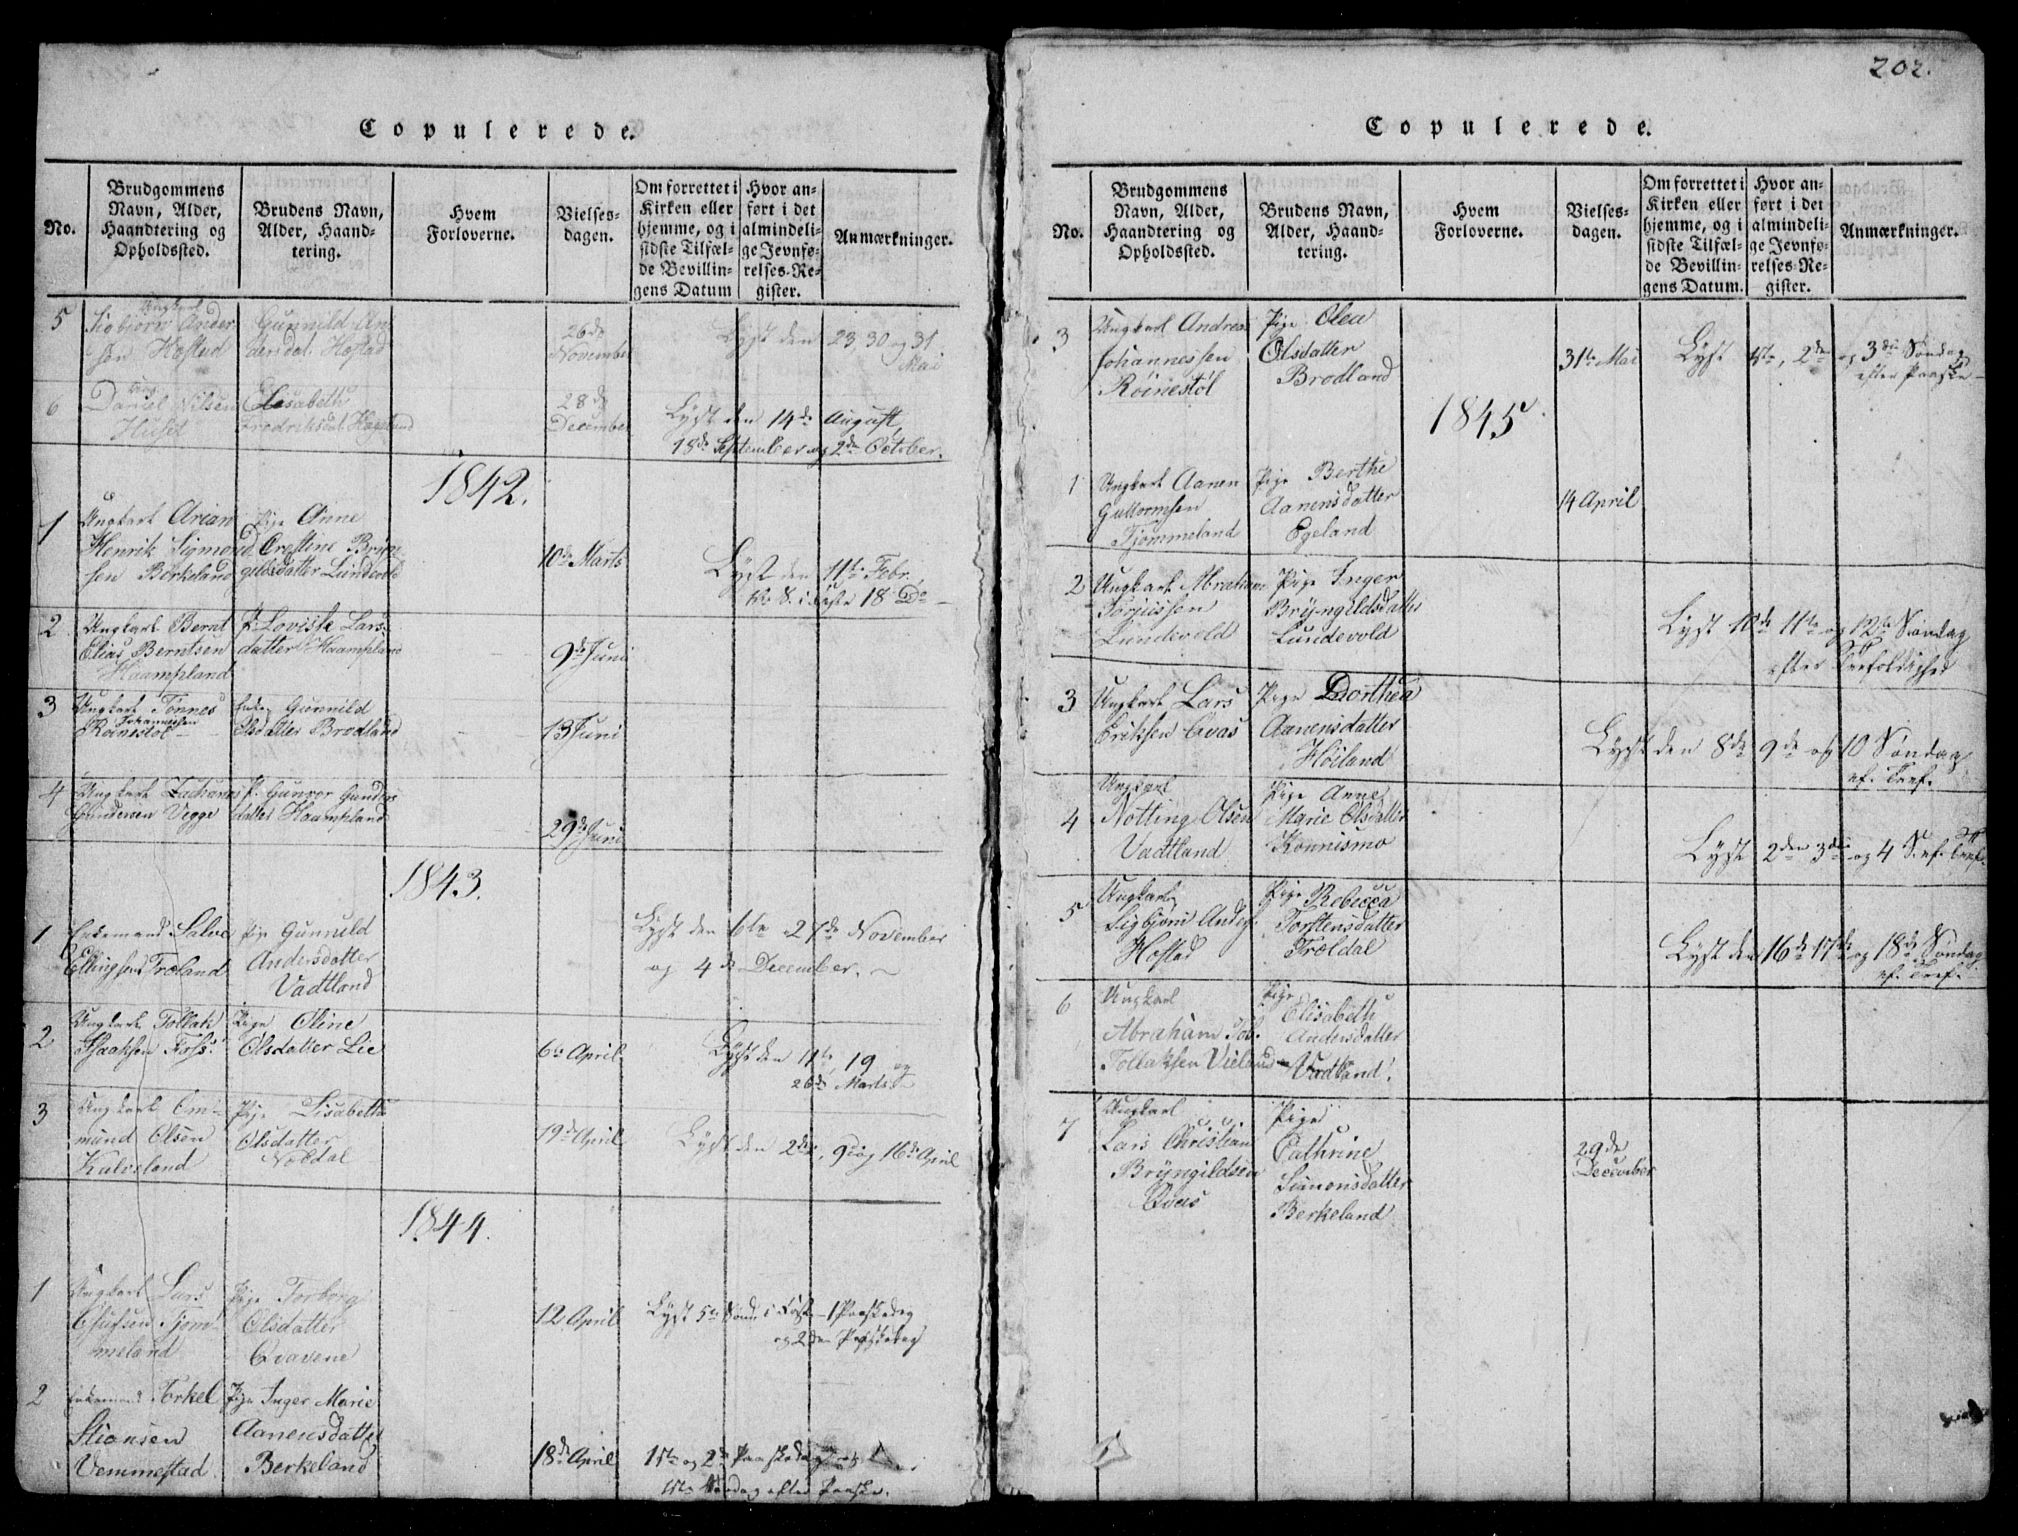 Copulerede.
No.
Brudgommens
Navn, Alder,
Haandtering og
Opholdssted.
Brudens Navn,
Alder, Haand-
tering.
Hvem
Forloverne.
Vielses-
dagen.
Om forrettet i
Kirken eller
hjemme, og i
sidste Tilfæl-
de Bevillin-
gens Datum
Hvor an-
ført i det
almindeli-
ge Jevnfø-
relses-Re-
gister.
Anmærkninger.
5
Ungkarl
Sigbjørn Ander
sen Høstad
Gunnild An
dersdat. Høstad
26de
November
Lyst den 23 30 og 31
Mai
6
Ung.
Daniel Nilsen
Huset
Elisabeth
Fredriksdat. Hægeland
28de
December
Lyst den 14de August,
18de September og 2den October.
1842.
1
Ungkarl Arian
Henrik Sigmond
sen Berkeland
Pige Anne
Crestine Bryn
gildsdatter Lundevold
10de Marts
Lyst den 11te Febr.
18 Do
2
Ungkarl Bernt
Elias Berntsen
Haampland
P. Loviste Lars-
datter Haampland
9de Juni
3
Ungkarl Tønnes
Johannessen
Røinestøl
Enke Gunnild
Olsdatter Brodland
13 Juni
4
Ungkarl Zacharias
Gundersen Vigge
P. Gunvor Gunders
datter Haampland
29de Juni
1843.
1
Enkemand Salve
Ellingsen Træland
Pige Gunnild
Andersdatter
Vadtland
Lyst den 6te 27de November
og 4de December.
2
Ungkarl Tollak
Isaaksen Foss.
Pige Oline
Olsdatter Lie
6te April
Lyst den 11te, 19 og
26de Marts
3
Ungkarl Om-
mund Olsen
Kalveland
Pige Lisabeth
Olsdatter
Nøddal
19de April
Lyst den 2den, 9 og 16de April
1844.
1
Ungkarl Lars
Tjom-
meland
Pige Torborg
Olsdatter
Qvavene
12 April
Lyst 5te Sønd. i Faste 1 Paaskedag
og 2den Paaskedag
2
Enkemand Torkel
Stiansen
Vemmestad
Pige Inger Marie
Aanensdatter
Berkeland
18de April
1ste og 2den Paaskedag og
1ste Søndag efter Paaske.
202.
Copulerede.
No.
Brudgommens
Navn, Alder,
Haandtering og
Opholdssted.
Brudens Navn,
Alder, Haand-
tering.
Hvem
Forloverne.
Vielses-
dagen.
Om forrettet i
Kirken eller
hjemme, og i
sidste Tilfæl-
de Bevillin-
gens Datum.
Hvor an-
ført i det
almindeli-
ge Jevnfø-
relses-Re-
gister.
Anmærkninger.
3
Ungkarl Andreas
Johannessen
Røinestøl
Pige Olea
Olsdatter
Brodland
31te Mai
Lyst 1ste, 2den og 3die Søndag
efter Paaske
1845.
1
Ungkarl Aanen
Guttormsen
Tjommeland
Pige Berthe
Aanensdatter
Egeland
14 April
2
Ungkarl Abraham
Torjussen
Lundevold
Pige Inger
Bryngildsdatter
Lundevold
Lyst 10de 11te og 12te Søndag
efter Trefoldighed
3
Ungkarl Lars
Eriksen Qvas
Pige Dorthea
Aanensdatter
Høiland
Lyst den 8de 9de og 10 Søndag
ef. Tref.
4
Ungkarl
Notting Olsen
Vadtland
Pige Anne
Marie Olsdatter
Konnismo
Lyst 2den 3die og 4 S. ef. Tref.
5
Ungkarl
Sigbjørn Anders.
Høstad
Pige Rebecca
Torstensdatter
Trældal
Lyst den 16de 17de og 18de Søndag
ef. Tref.
6
Ungkarl
Abraham Tob.
Tollaksen Vieland
Pige
Elisabeth
Andersdatter
Vadtland.
7
Ungkarl
Lars Christian
Bryngildsen
Qvas
Pige
Cathrine
Simonsdatter
Berkeland
29de
December